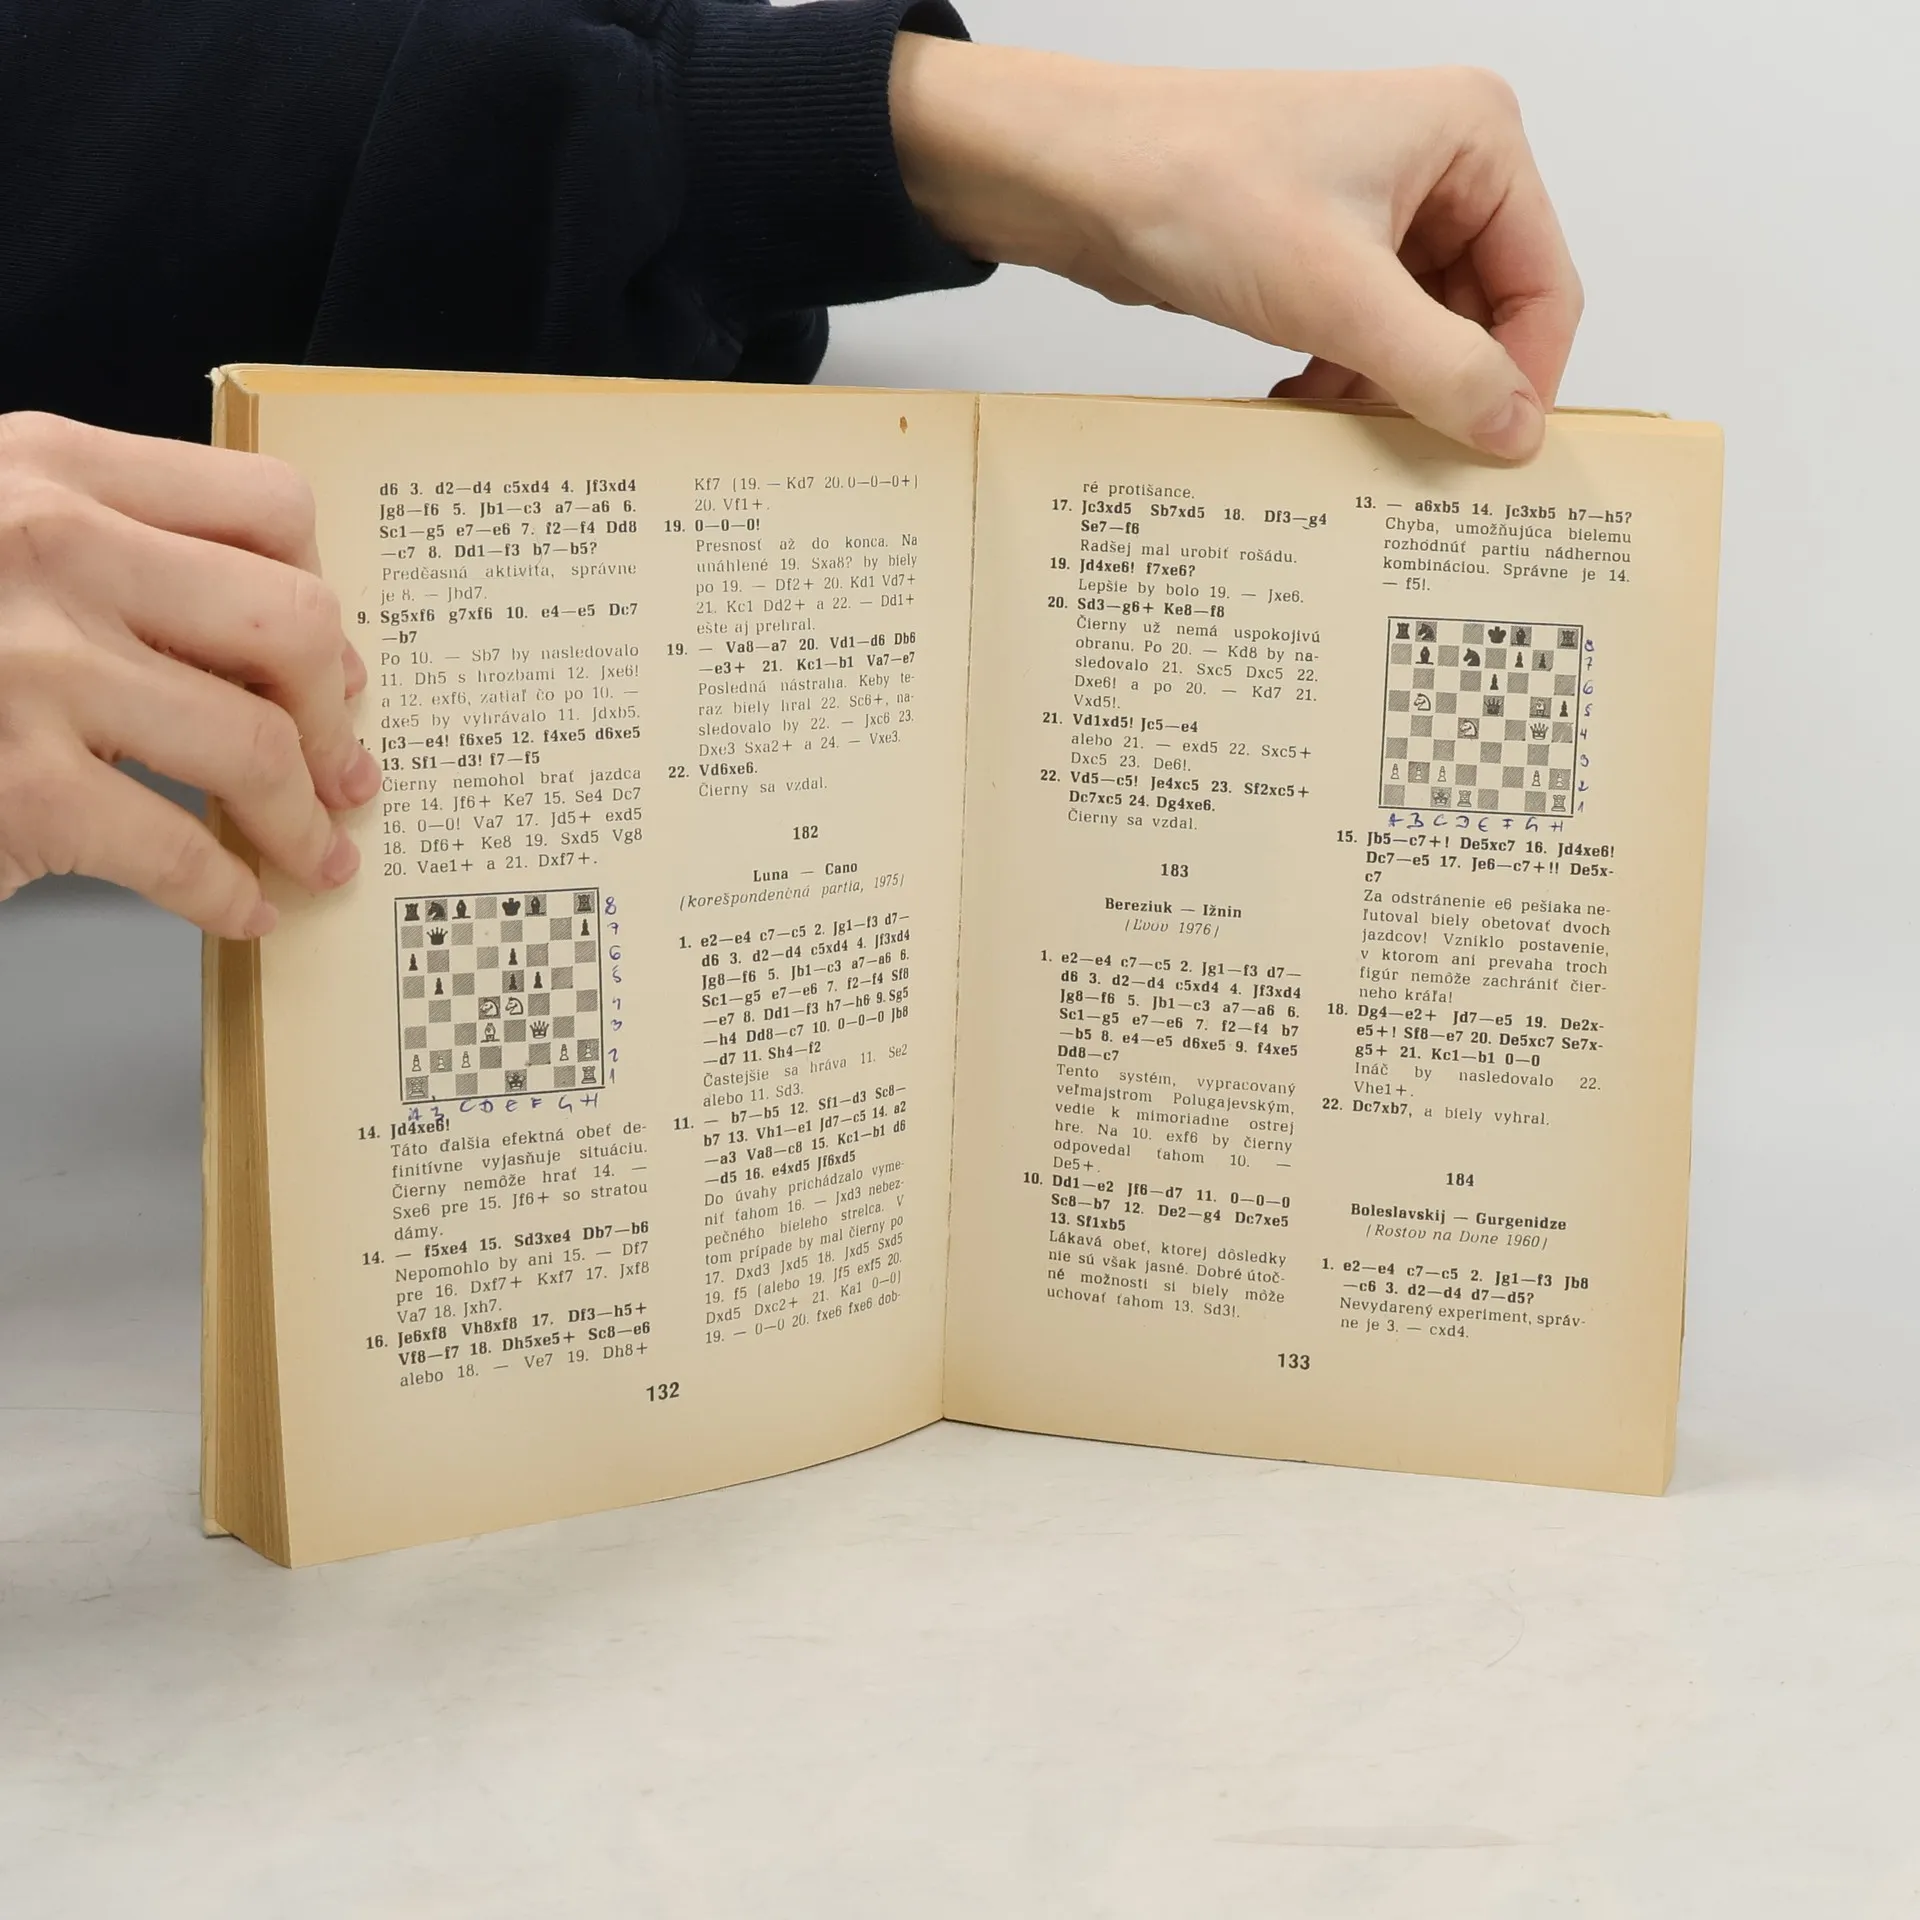 d6 3. d2—d4 c5xd4 4. Jf3xd4
Jg8—f6 5. Jb1—c3 a7—a6 6.
Sc1—g5 e7—e6 7. f2—f4 Dd8
—c7 8. Dd1—f3 b7—b5?
Predčasná aktivita, správne
je 8. — Jbd7.
9. Sg5xf6 g7xf6 10. e4—e5 Dc7
—b7
Po 10. — Sb7 by nasledovalo
11. Dh5 s hrozbami 12. Jxe6!
a 12. exf6, zatiaľ čo po 10. —
dxe5 by vyhrávalo 11. Jdxb5.
Jc3—e4! f6xe5 12. f4xe5 d6xe5
13. Sf1—d3! f7—f5
Čierny nemohol brať jazdca
pre 14. Jf6+ Ke7 15. Se4 Dc7
16. 0—0! Va7 17. Jd5+ exd5
18. Df6+ Ke8 19. Sxd5 Vg8
20. Vae1+ a 21. Dxf7+.
8
7
6
5
4
3
2
1
A B C D E F G H
14. Jd4xe6!
Táto ďalšia efektná obeť de-
finitívne vyjasňuje situáciu.
Čierny nemôže hrať 14. —
Sxe6 pre 15. Jf6+ so stratou
dámy.
14. — f5xe4 15. Sd3xe4 Db7—b6
Nepomohlo by ani 15. — Df7
pre 16. Dxf7+ Kxf7 17. Jxf8
Va7 18. Jxh7.
16. Je6xf8 Vh8xf8 17. Df3—h5+
Vf8—f7 18. Dh5xe5+ Sc8—e6
alebo 18. — Ve7 19. Dh8+
Kf7 (19. — Kd7 20. 0—0—0+)
20. Vf1+.
19. 0—0—0!
Presnosť až do konca. Na
unáhlené 19. Sxa8? by biely
po 19. — Df2+ 20. Kd1 Vd7+
21. Kc1 Dd2+ a 22. — Dd1+
ešte aj prehral.
19. — Va8—a7 20. Vd1—d6 Db6
—e3+ 21. Kc1—b1 Va7—e7
Posledná nástraha. Keby te-
raz biely hral 22. Sc6+, na-
sledovalo by 22. — Jxc6 23.
Dxe3 Sxa2+ a 24. — Vxe3.
22. Vd6xe6.
Čierny sa vzdal.
182
Luna — Cano
(korešpondenčná partia, 1975)
1. e2—e4 c7—c5 2. Jg1—f3 d7—
d6 3. d2—d4 c5xd4 4. Jf3xd4
Jg8—f6 5. Jb1—c3 a7—a6 6.
Sc1—g5 e7—e6 7. f2—f4 Sf8
—e7 8. Dd1—f3 h7—h6 9. Sg5
—h4 Dd8—c7 10. 0—0—0 Jb8
—d7 11. Sh4—f2
Častejšie sa hráva 11. Se2
alebo 11. Sd3.
11. — b7—b5 12. Sf1—d3 Sc8—
b7 13. Vh1—e1 Jd7—c5 14. a2
—a3 Va8—c8 15. Kc1—b1 d6
—d5 16. e4xd5 Jf6xd5
Do úvahy prichádzalo vyme-
niť ťahom 16. — Jxd3 nebez-
pečného bieleho strelca. V
tom prípade by mal čierny po
17. Dxd3 Jxd5 18. Jxd5 Sxd5
19. f5 (alebo 19. Jf5 exf5 20.
Dxd5 Dxc2+ 21. Ka1 0—0)
19. — 0—0 20. fxe6 fxe6 dob-
132
ré protišance.
17. Jc3xd5 Sb7xd5 18. Df3—g4
Se7—f6
Radšej mal urobiť rošádu.
19. Jd4xe6! f7xe6?
Lepšie by bolo 19. — Jxe6.
20. Sd3—g6+ Ke8—f8
Čierny už nemá uspokojivú
obranu. Po 20. — Kd8 by na-
sledovalo 21. Sxc5 Dxc5 22.
Dxe6! a po 20. — Kd7 21.
Vxd5!.
21. Vd1xd5! Jc5—e4
alebo 21. — exd5 22. Sxc5+
Dxc5 23. De6!.
22. Vd5—c5! Je4xc5 23. Sf2xc5+
Dc7xc5 24. Dg4xe6.
Čierny sa vzdal.
183
Bereziuk — Ižnin
(Ľvov 1976)
1. e2—e4 c7—c5 2. Jg1—f3 d7—
d6 3. d2—d4 c5xd4 4. Jf3xd4
Jg8—f6 5. Jb1—c3 a7—a6 6.
Sc1—g5 e7—e6 7. f2—f4 b7
—b5 8. e4—e5 d6xe5 9. f4xe5
Dd8—c7
Tento systém, vypracovaný
veľmajstrom Polugajevským,
vedie k mimoriadne ostrej
hre. Na 10. exf6 by čierny
odpovedal ťahom 10. —
De5+.
10. Dd1—e2 Jf6—d7 11. 0—0—0
Sc8—b7 12. De2—g4 Dc7xe5
13. Sf1xb5
Lákavá obeť, ktorej dôsledky
nie sú však jasné. Dobré útoč-
né možnosti si biely môže
uchovať ťahom 13. Sd3!.
13. — a6xb5 14. Jc3xb5 h7—h5?
Chyba, umožňujúca bielemu
rozhodnúť partiu nádhernou
kombináciou. Správne je 14.
— f5!.
8
7
6
5
4
3
2
1
A B C D E F G H
15. Jb5—c7+! De5xc7 16. Jd4xe6!
Dc7—e5 17. Je6—c7+!! De5x-
c7
Za odstránenie e6 pešiaka ne-
ľutoval biely obetovať dvoch
jazdcov! Vzniklo postavenie,
v ktorom ani prevaha troch
figúr nemôže zachrániť čier-
neho kráľa!
18. Dg4—e2+ Jd7—e5 19. De2x-
e5+! Sf8—e7 20. De5xc7 Se7x-
g5+ 21. Kc1—b1 0—0
Ináč by nasledovalo 22.
Vhe1+.
22. Dc7xb7, a biely vyhral.
184
Boleslavskij — Gurgenidze
(Rostov na Done 1960)
1. e2—e4 c7—c5 2. Jg1—f3 Jb8
—c6 3. d2—d4 d7—d5?
Nevydarený experiment, správ-
ne je 3. — cxd4.
133